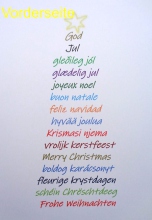 Vorderseite
God
Jul
gleðileg jól
glædelig jul
joyeux noel
buon natale
feliz navidad
hyvää joulua
Krismasi njema
vrolijk kerstfeest
Merry Christmas
boldog karácsonyt
fleurige krystdagen
schéin Chrëschtdeeg
Frohe Weihnachten